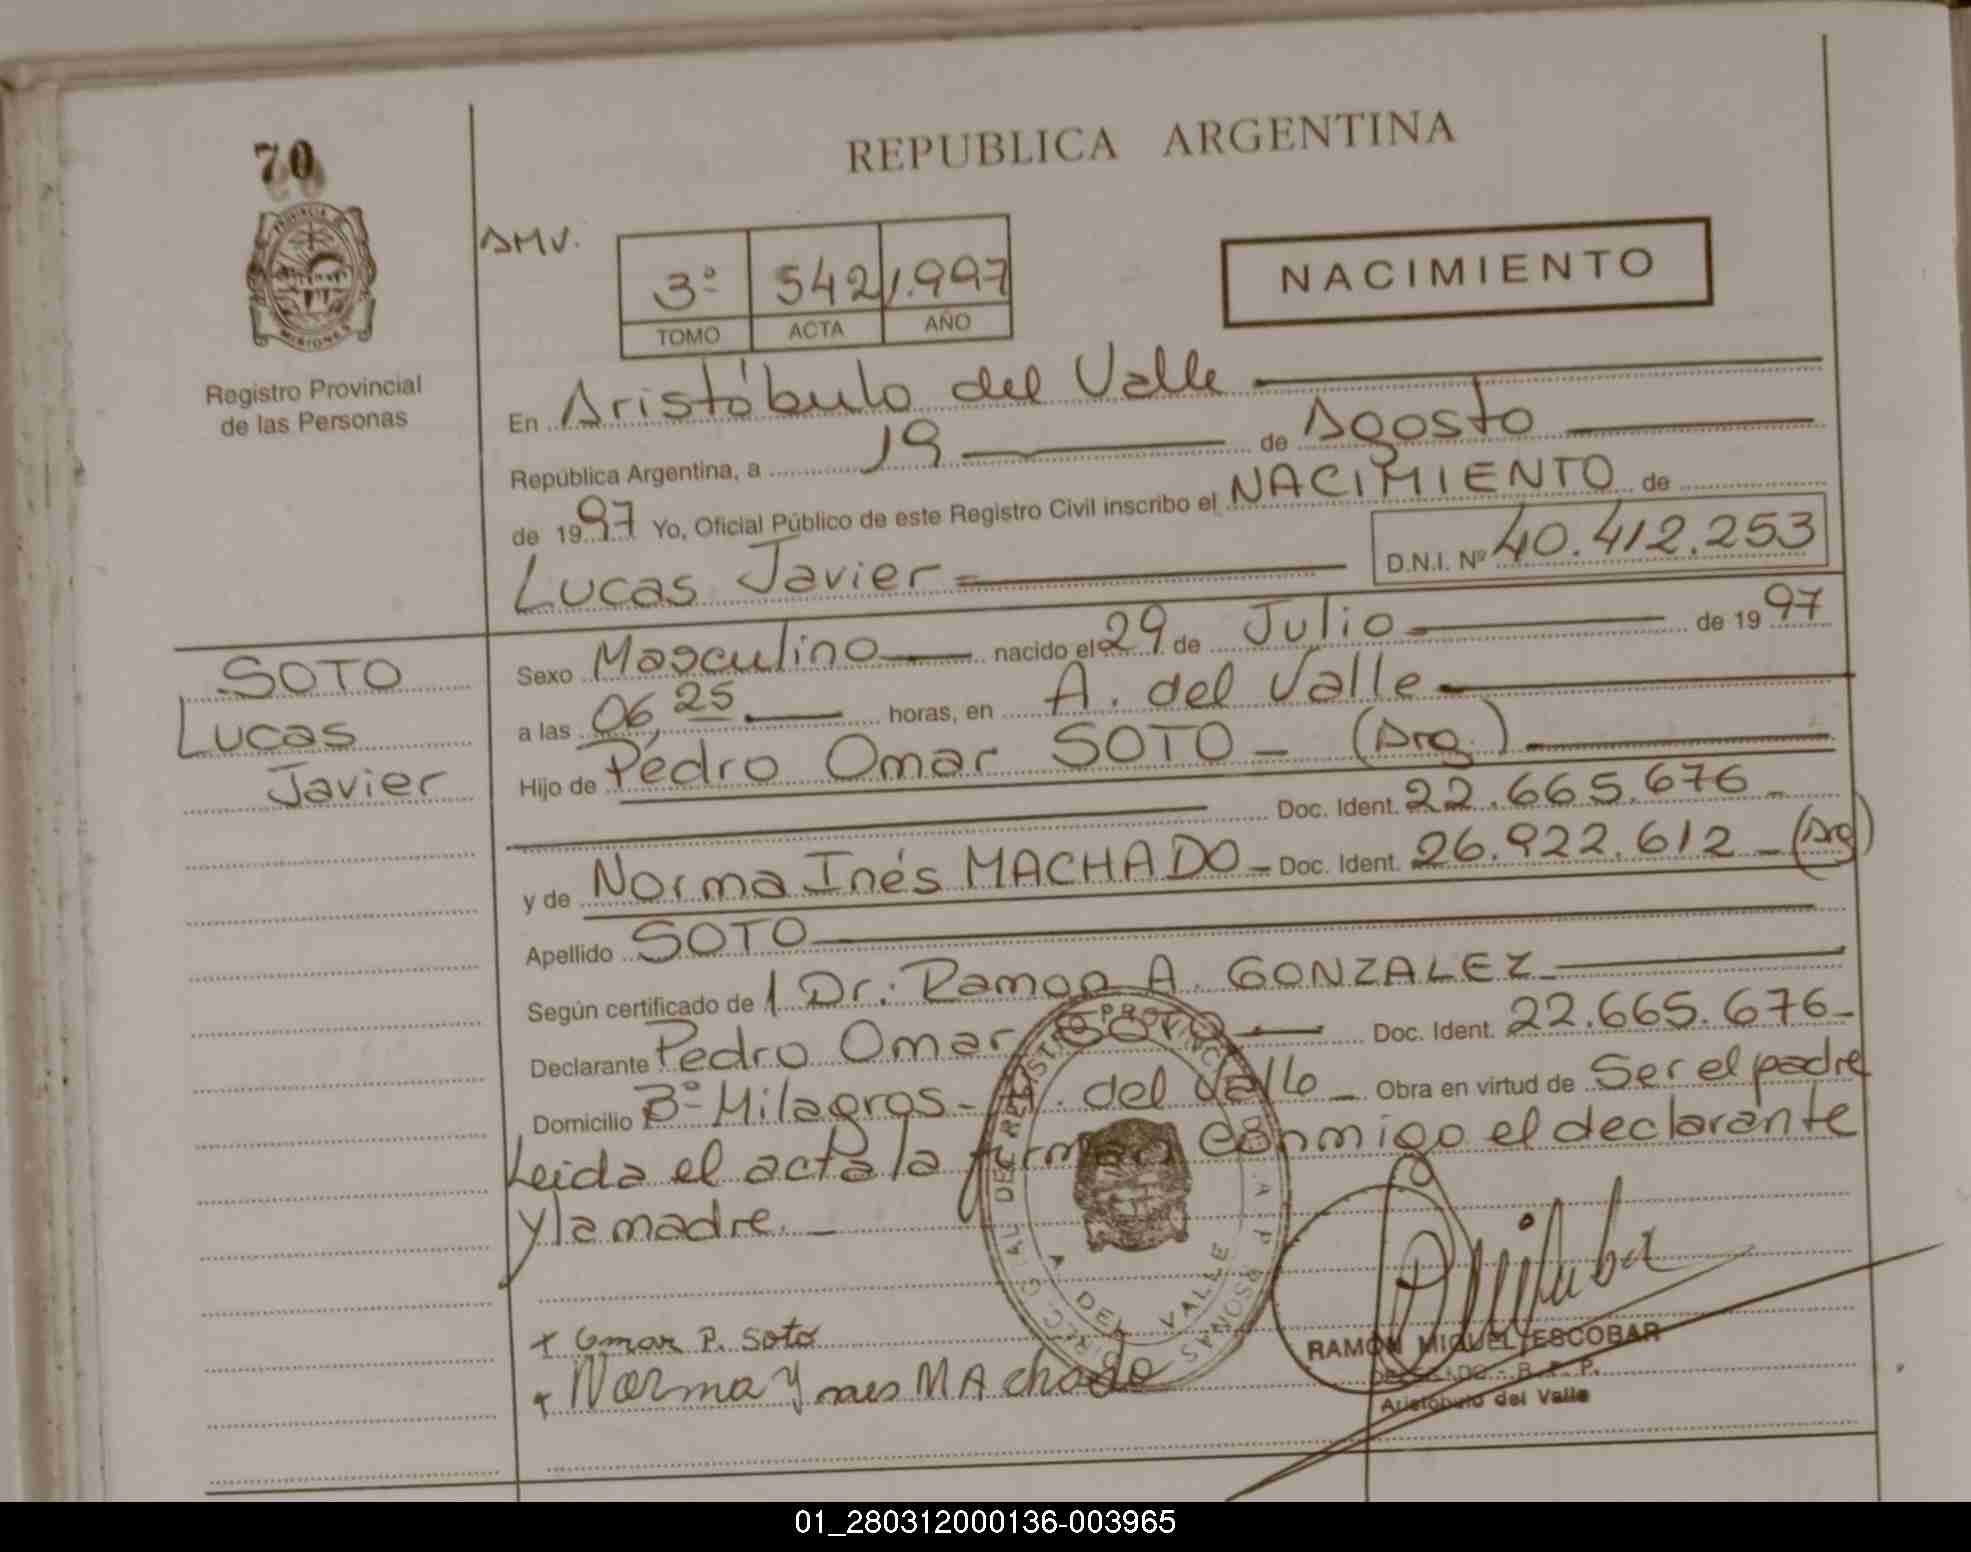 70
REPUBLICA ARGENTINA
PROVINCIA DE
MISIONES
Registro Provincial
de las Personas
AMV.
3º 542 1.997
TOMO ACTA AÑO
NACIMIENTO
En Aristóbulo del Valle
República Argentina, a 19 de Agosto
de 1997 Yo, Oficial Público de este Registro Civil inscribo el NACIMIENTO de
Lucas Javier D.N.I. Nº 40.412.253
SOTO
Lucas
Javier
Sexo Masculino nacido el 29 de Julio de 1997
a las 06,25 horas, en A. del Valle
Hijo de Pedro Omar SOTO - (Arg.)
Doc. Ident. 22.665.676 -
y de Norma Inés MACHADO - Doc. Ident. 26.922.612 - (Arg)
Apellido SOTO
Según certificado de 1 Dr. Ramon A. GONZALEZ
Declarante Pedro Omar SOTO Doc. Ident. 22.665.676-
Domicilio Bº Milagros - A. del Valle - Obra en virtud de Ser el padre
Leida el acta la firman conmigo el declarante
y la madre. -
+ Omar P. Soto
+ Norma Ynes MAchado
DEL VALLE
RAMON MIGUEL ESCOBAR
Aristóbulo del Valle
01_280312000136-003965